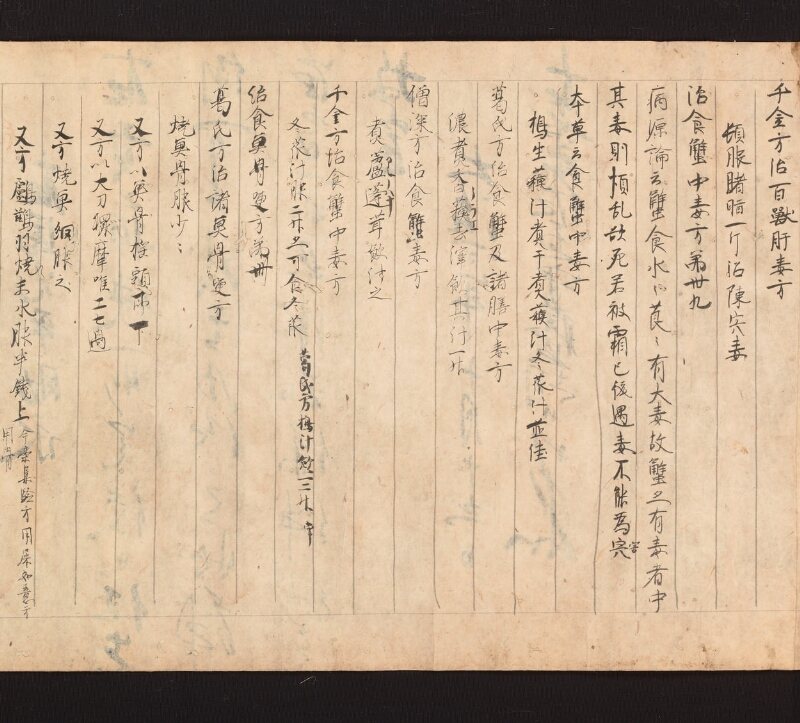 千金方治百獣肝毒方
頓服猪脂一斤治陳宍毒
治食蟹中毒方第卅九
病源論云蟹食水茛〻有大毒故蟹亦有毒者中
其毒則煩乱欲死若被霜已後遇毒不能為害
本草云食蟹中毒方
搗生蘓汁煮干蘓汁冬苽汁並佳
葛氏方治食蟹及諸膳中毒方
濃煮香蘓去滓飲其汁一升
僧深方治食蟹毒方
煮蘆茸飲汁之
千金方治食蟹中毒方
冬苽汁服二升亦可食冬苽 葛氏方 汁飲一二升
治食魚骨哽方第卌
葛氏方治諸魚骨哽方
燒魚骨服少〻
又方以魚骨挿頭 下
又方以大刀環摩喉二七過
又方燒魚網服之
又方鸕鷀羽燒末水服半錢上今案集驗方用屎如意方
用骨